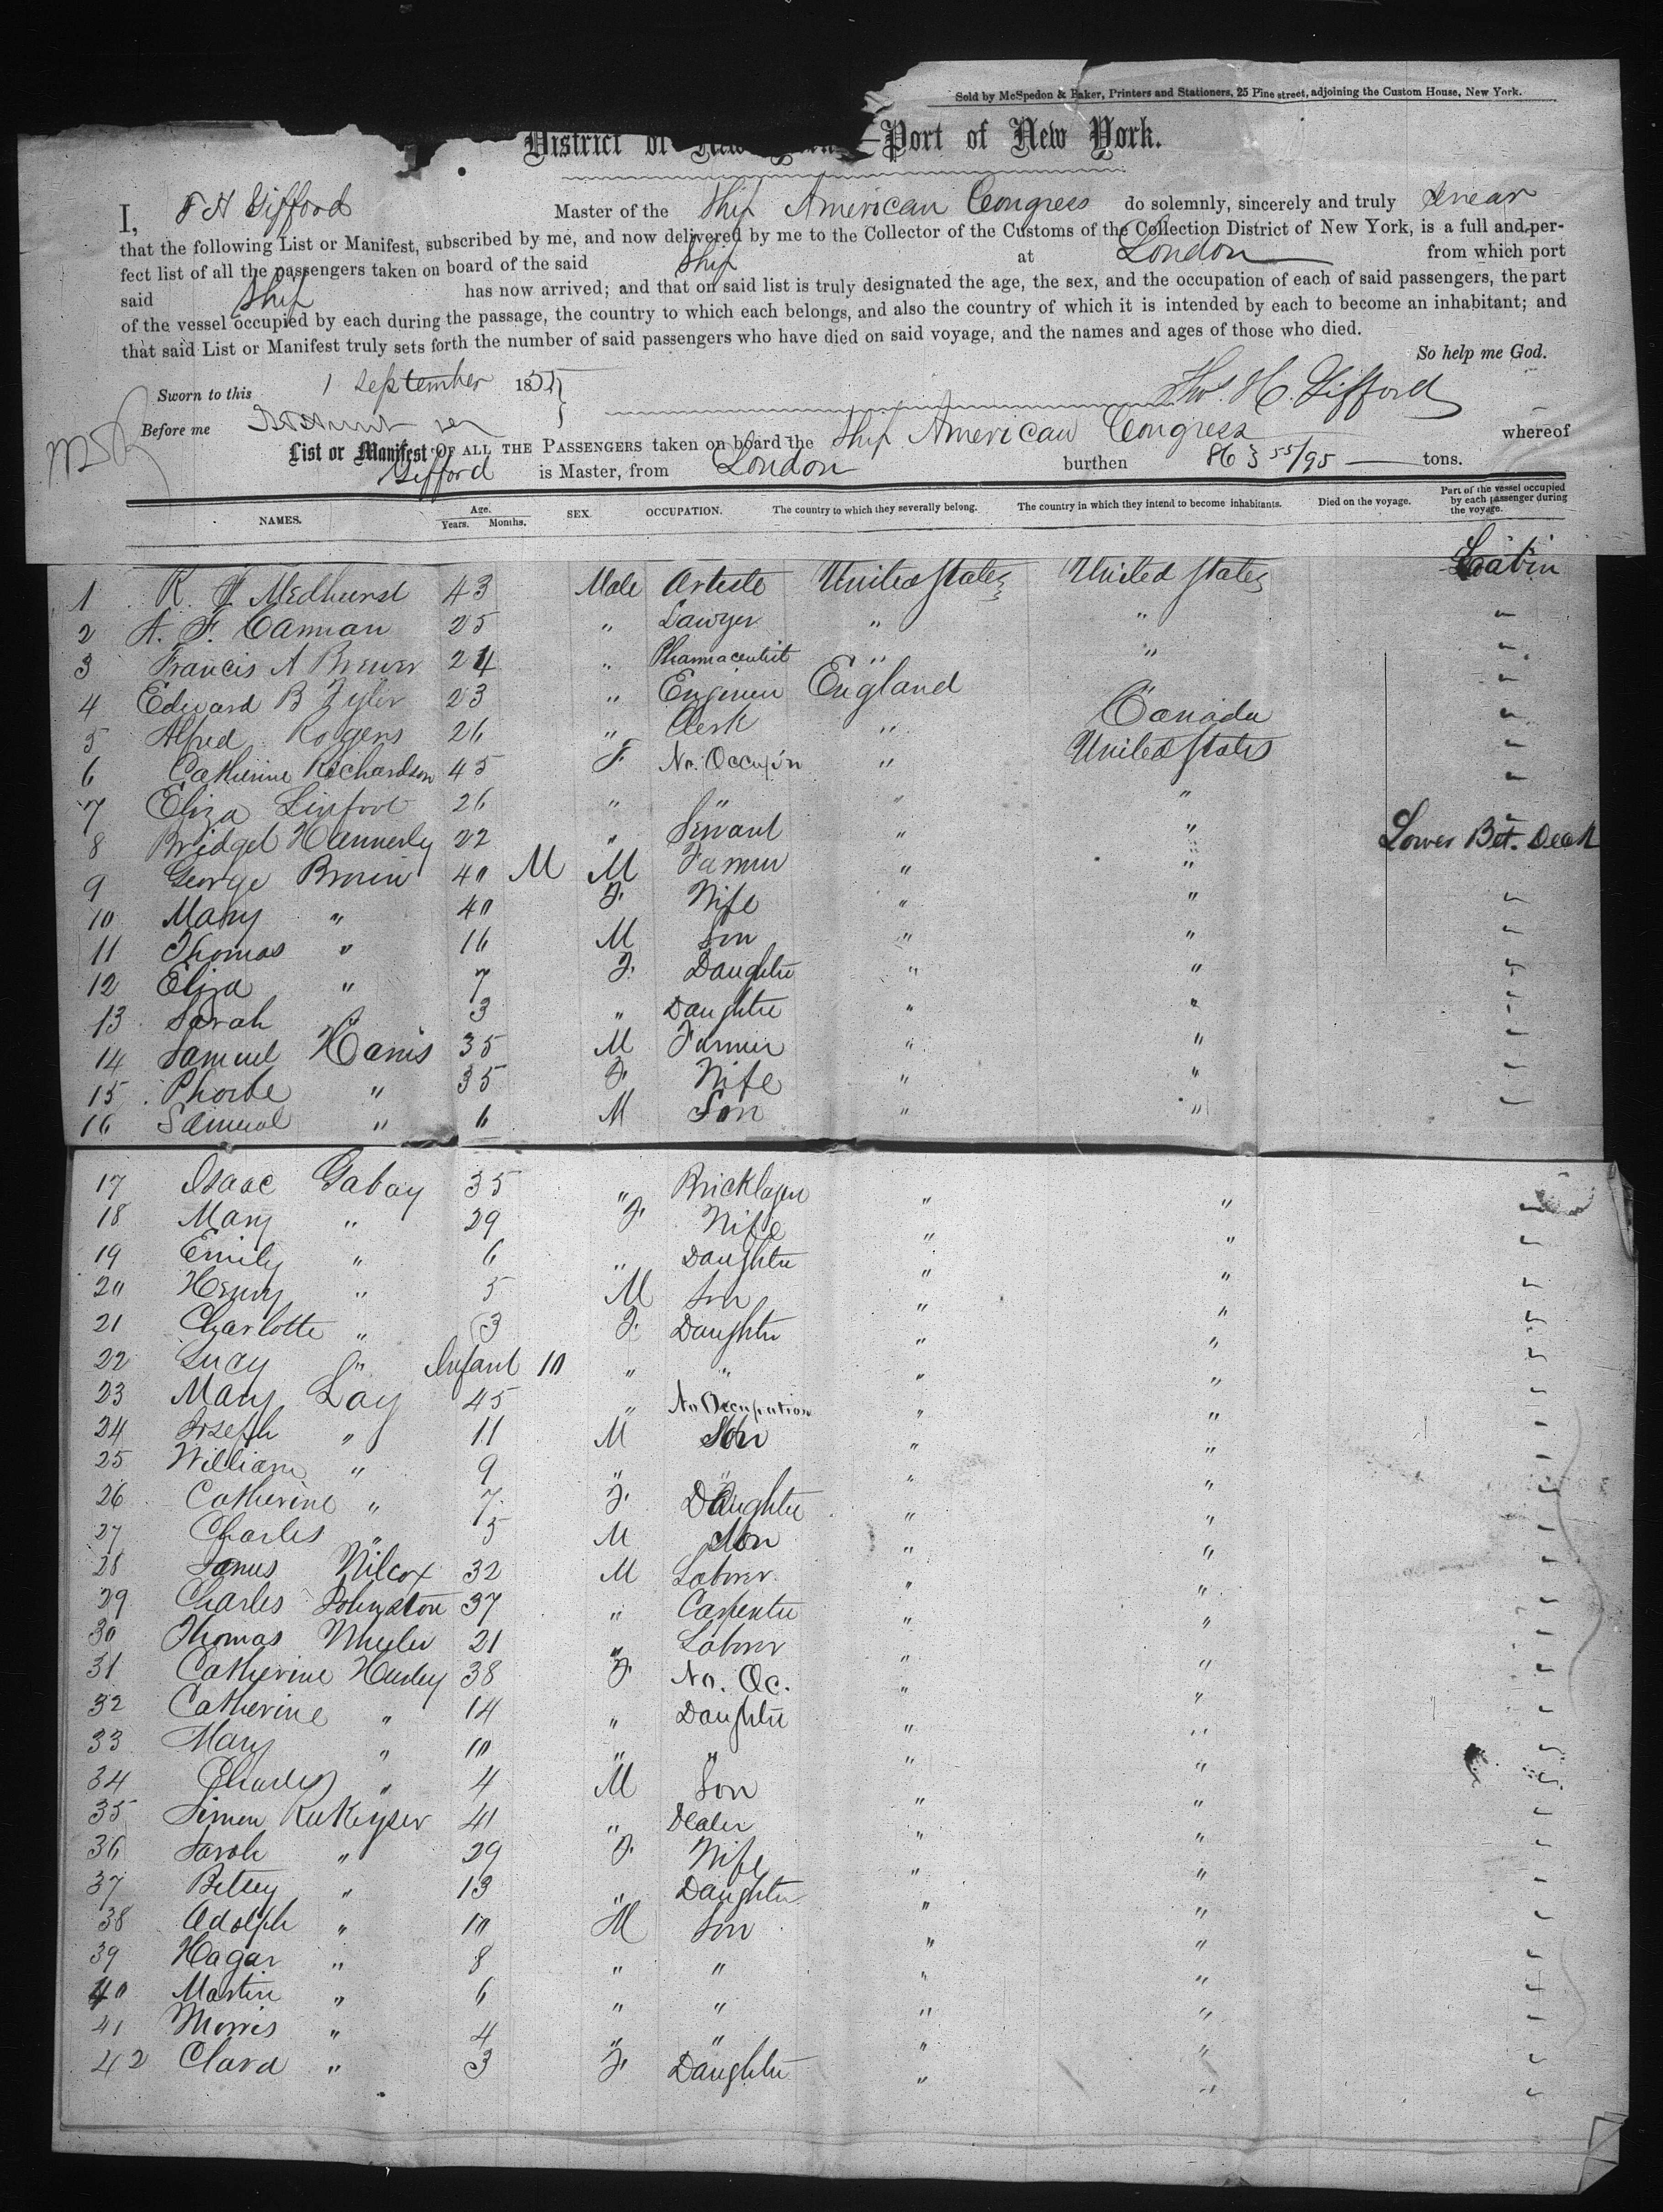 Sold by McSpedon & Baker, Printers and Stationers, 25 Pine street, adjoining the Custom House, New York.
District of New York—Port of New York.
I, T H Gifford Master of the Ship American Congress do solemnly, sincerely and truly swear
that the following List or Manifest, subscribed by me, and now delivered by me to the Collector of the Customs of the Collection District of New York, is a full and per-
fect list of all the passengers taken on board of the said Ship at London from which port
said Ship has now arrived; and that on said list is truly designated the age, the sex, and the occupation of each of said passengers, the part
of the vessel occupied by each during the passage, the country to which each belongs, and also the country of which it is intended by each to become an inhabitant; and
that said List or Manifest truly sets forth the number of said passengers who have died on said voyage, and the names and ages of those who died.
So help me God.
Sworn to this 1 September 185
Thos. H. Gifford
Before me
List or Manifest OF ALL THE PASSENGERS taken on board the Ship American Congress whereof
Gifford is Master, from London burthen 863 55/95 tons.
NAMES. Age. Years. Months. SEX. OCCUPATION. The country to which they severally belong. The country in which they intend to become inhabitants. Died on the voyage. Part of the vessel occupied by each passenger during the voyage.
1 R. J Medhurst 43 Male Artiste United States United States Cabin
2 A. F. Cannan 25 " Lawyer " " "
3 Francis A Brewer 24 " Pharmaceutist " " "
4 Edward B Tyler 23 " Engineer England "
5 Alfred Rogers 26 " Clerk " Canada "
6 Catherine Richardson 45 F. No. Occup'n " United States "
7 Eliza Linfoot 26 " " " " "
8 Bridget Hannerly 22 " Servant " " "
9 George Brown 40 M M Farmer " " Lower Bet. Deck
10 Mary " 40 F. Wife " " "
11 Thomas " 16 M Son " " "
12 Eliza " 7 F. Daughter " " "
13 Sarah " 3 " Daughter " " "
14 Samuel Harris 35 M Farmer " " "
15 Phoebe " 35 F. Wife " " "
16 Samuel " 6 M Son " " "
17 Isaac Gabay 35 " Bricklayer " " "
18 Mary " 29 F. Wife " " "
19 Emily " 6 " Daughter " " "
20 Henry " 5 M Son " " "
21 Charlotte " 3 F. Daughter " " "
22 Lucy " Infant 10 " " " " "
23 Mary Lay 45 " No Occupation " " "
24 Joseph " 11 M Son " " "
25 William " 9 " " " " "
26 Catherine " 7 F. Daughter " " "
27 Charles " 5 M Son " " "
28 James Wilcox 32 M Laborer " " "
29 Charles Johnston 37 " Carpenter " " "
30 Thomas Wheeler 21 " Laborer " " "
31 Catherine Hurley 38 F. No. Oc. " " "
32 Catherine " 14 " Daughter " " "
33 Mary " 10 " " " " "
34 Charles " 4 M Son " " "
35 Simon Rukeyser 41 " Dealer " " "
36 Sarah " 29 F. Wife " " "
37 Betsey " 13 " Daughter " " "
38 Adolph " 10 M Son " " "
39 Hagar " 8 " " " " "
40 Martin " 6 " " " " "
41 Morris " 4 " " " " "
42 Clara " 3 F. Daughter " " "